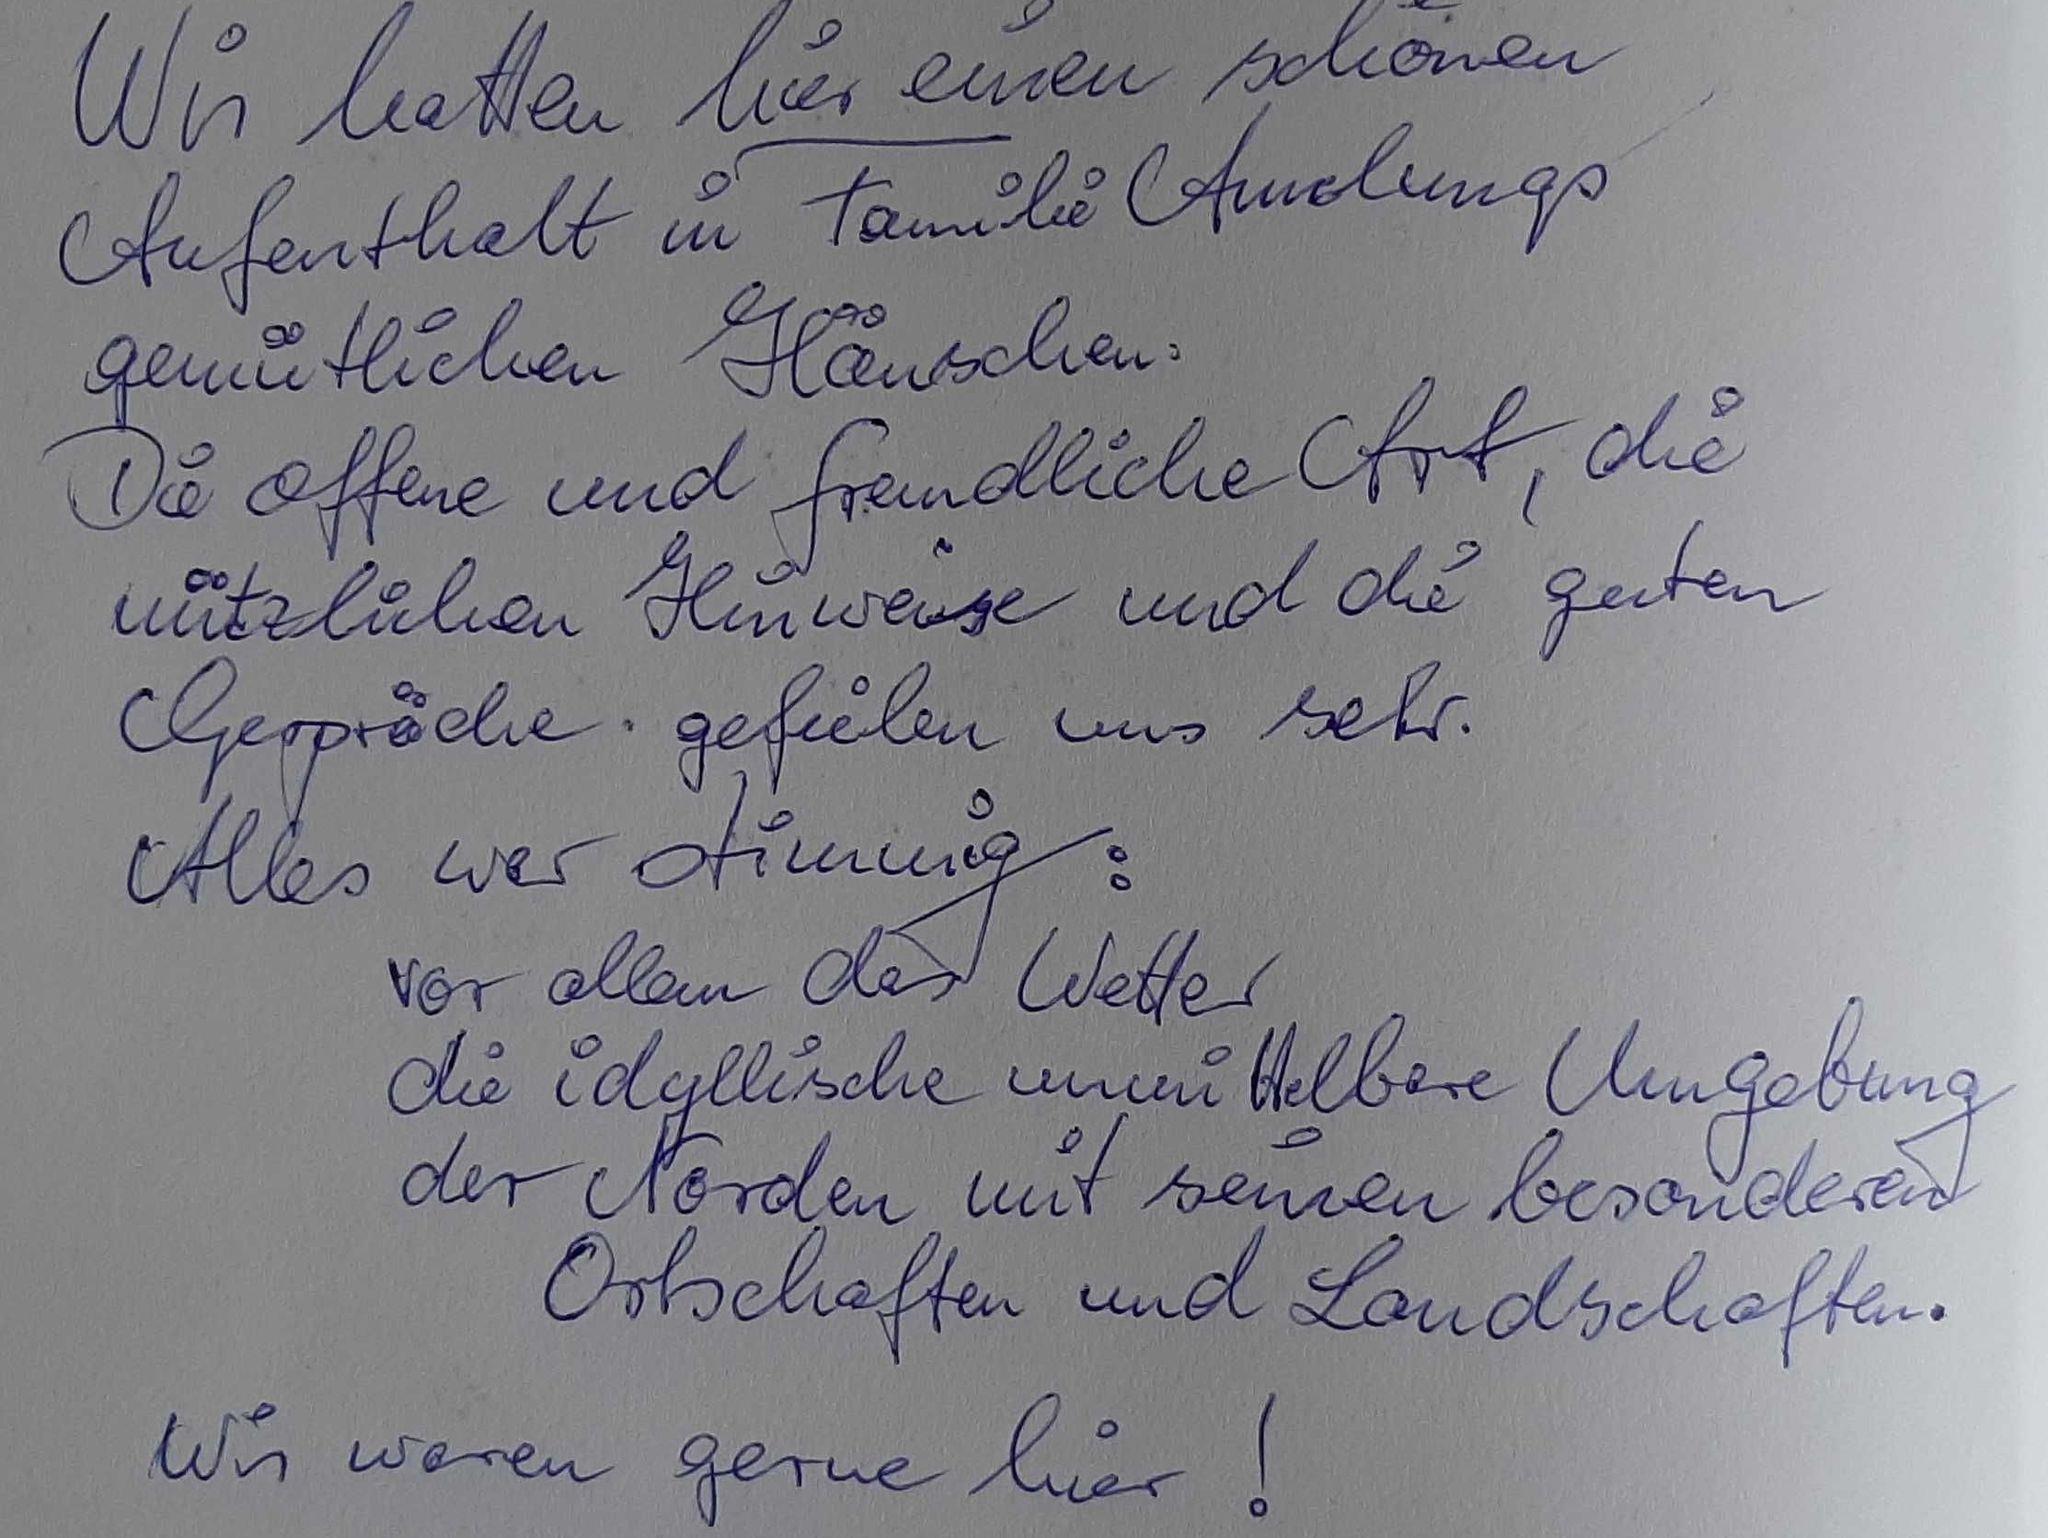 Wir hatten hier einen schönen
Aufenthalt in Familie Amolungs
gemütlichen Häuschen.
Die offene und freundliche Art, die
nützlichen Hinweise und die guten
Gespräche gefielen uns sehr.
Alles war stimmig:
vor allem das Wetter
die idyllische unmittelbare Umgebung
der Norden mit seinen besonderen
Ortschaften und Landschaften.
Wir waren gerne hier!